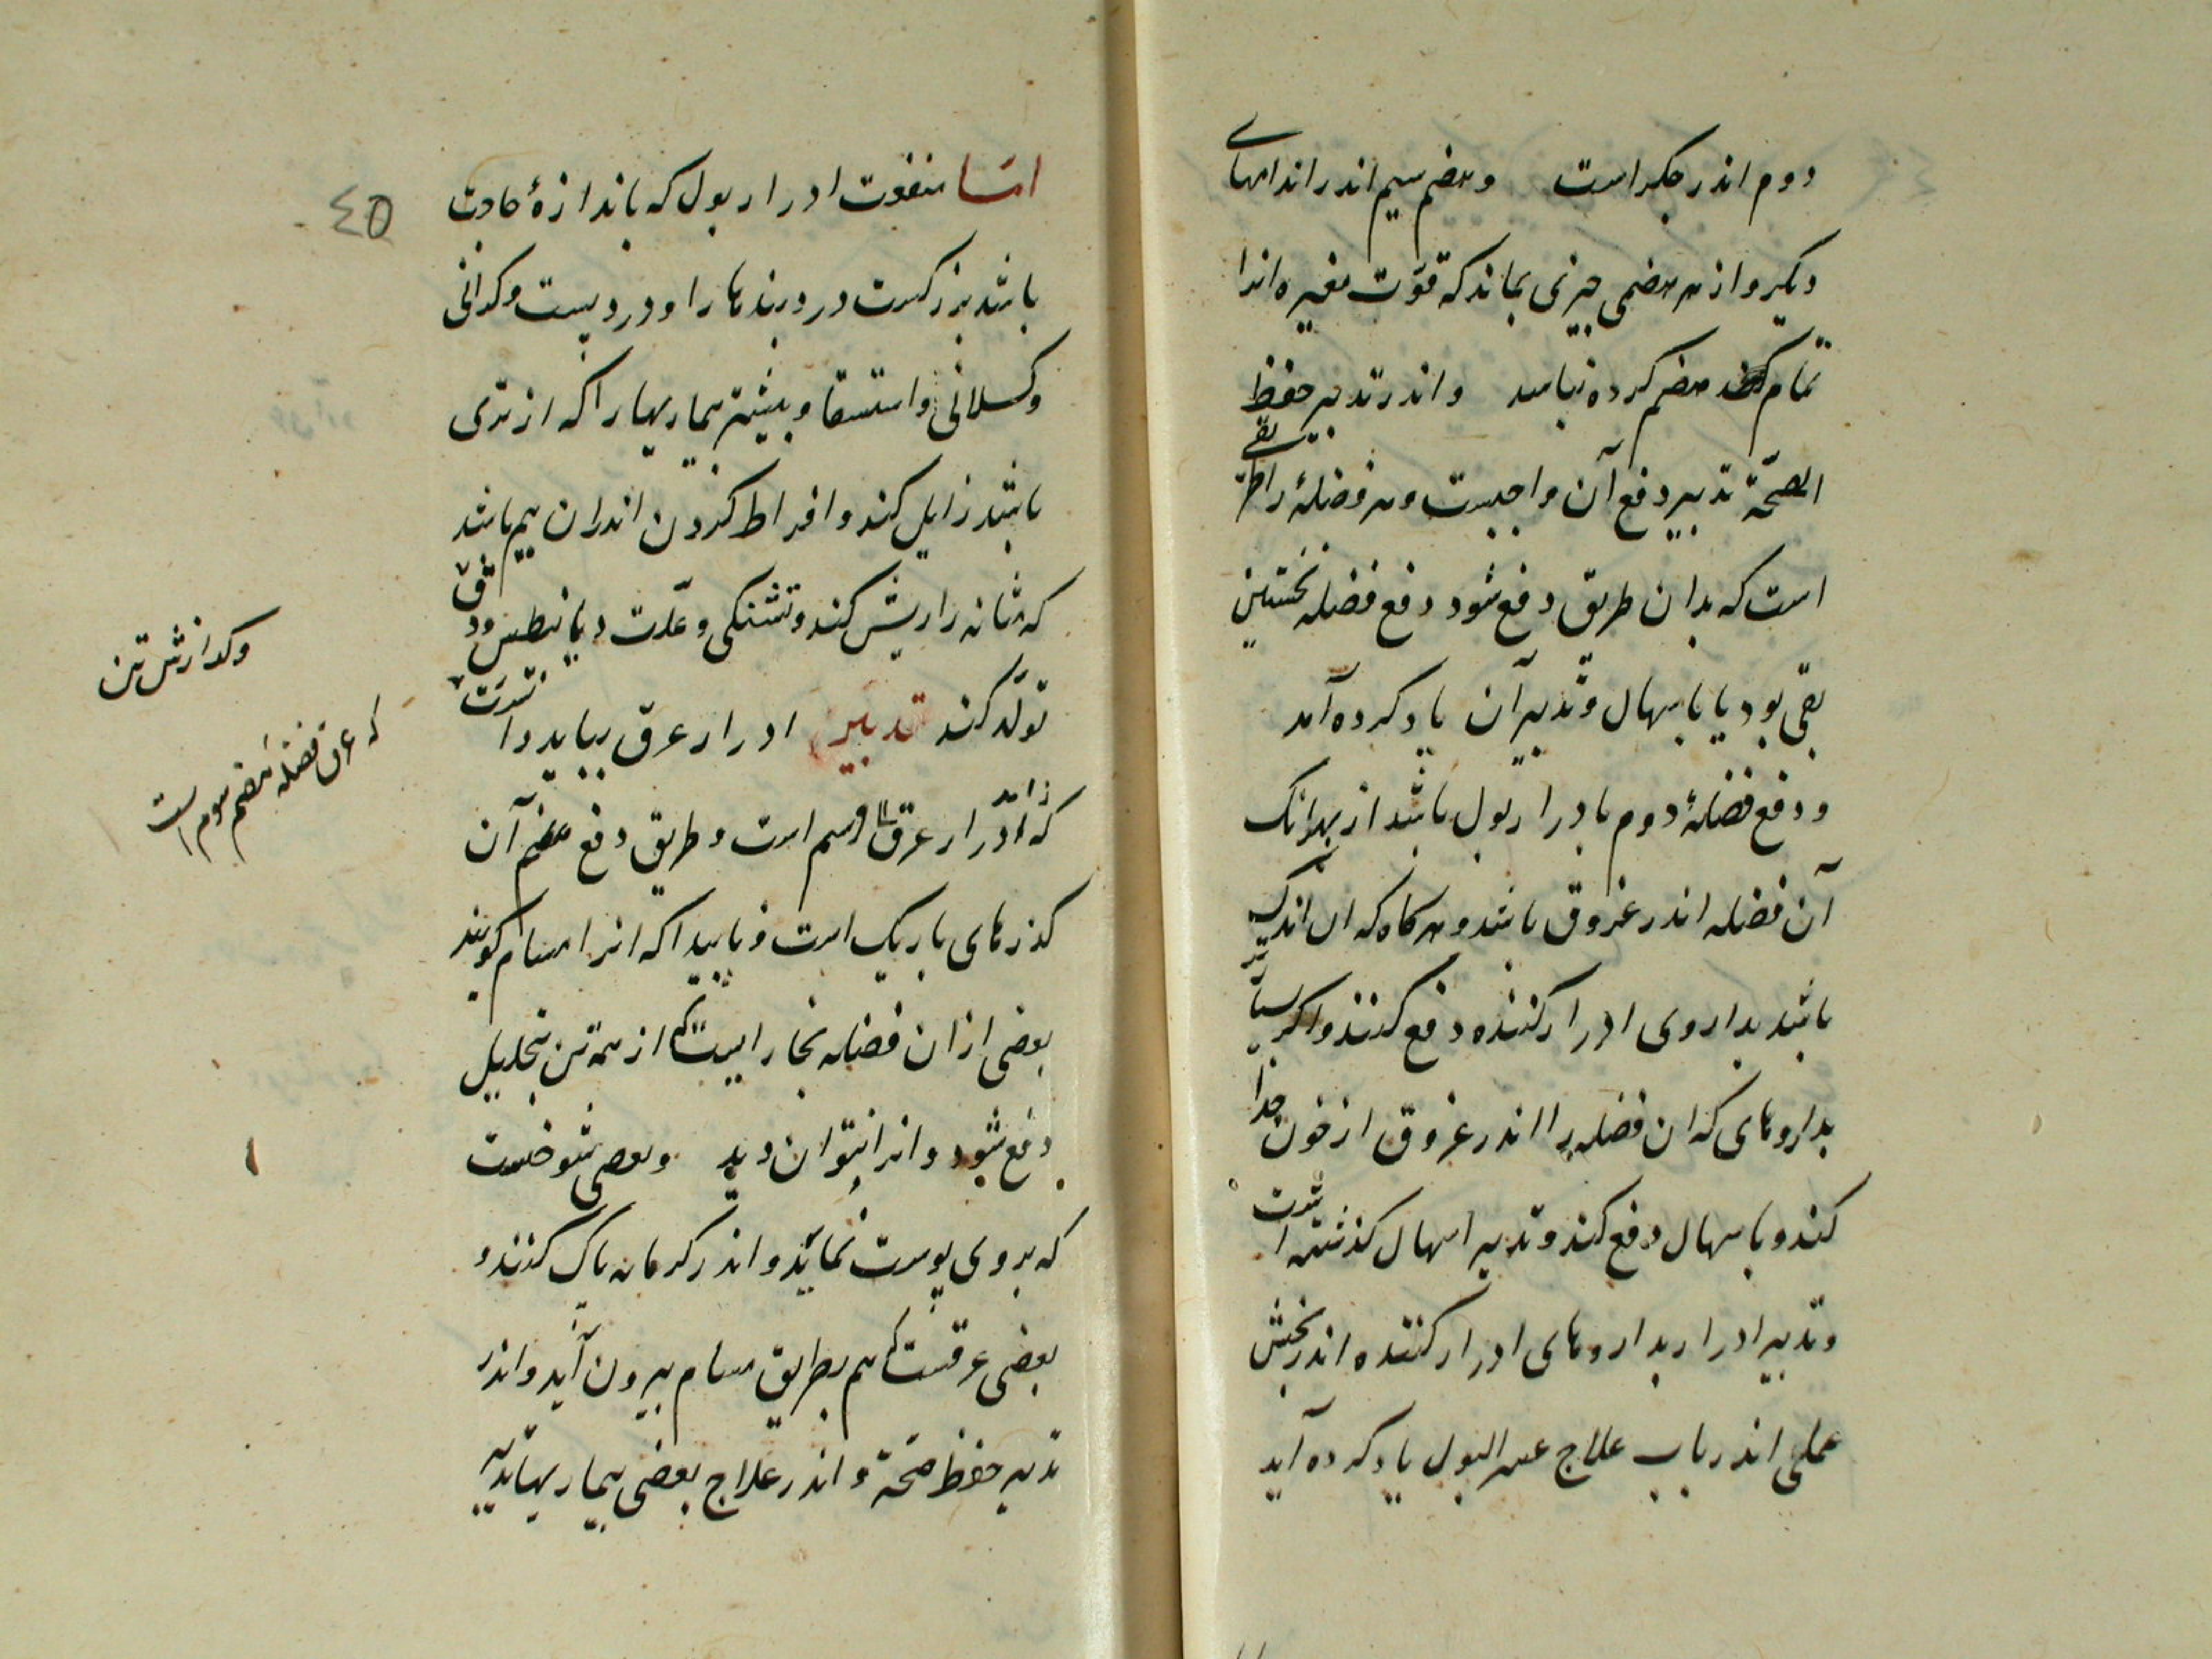 دوم اندر جکر است وهضم سیم اندر اندامهای
دیکر و از هر هضمی چیزی بماند که قوّت مغیره انرا
تمام هضم کرده نباشد و اندر تدبیر حفظ
الصحّة تدبیر دفع آن واجبست و هر فضلهٔ را طریقی
است که بدان طریق دفع شود دفع فضله نخستین
بقی بود یا باسهال و تدبیر آن یاد کرده آمد
و دفع فضلهٔ دوم بادرار بول باشد از بهر آنک
آن فضله اندر عروق باشد و هرکاه که ان اندک
باشد بداروی ادرار کننده دفع کنند و اکر بسیار
بداروهای که ان فضله را اندر عروق از خون جدا
کند و باسهال دفع کند و تدبیر اسهال کذشته است
و تدبیر ادرار بداروهای ادرار کننده اندر بخش
عملی اندر باب علاج عسر البول یاد کرده آید
٤٥
امّا منفعت ادرار بول که باندازهٔ حاجت
باشد بزرکست درد بندها را و درد پست و کرانی
و کسلانی و استسقا و بیشتر بیماریها را که از تری
باشد زایل کند و افراط کردن اندران بیم باشد
که مثانه را ریش کند و تشنکی و علّت دیابیطس و دق
تولّد کند تدبیر ادرار عرق بباید دانست
که ادرار عرق قسم است و طریق دفع هضم آن
کذرهای باریک است و ناپیدا که انرا مسام کویند
بعضی از ان فضله بخاراتیست که از همه تن بتحلیل
دفع شود و انرا نتوان دید و بعضی شوخست
که بر روی پوست نماید و اندر کرمابه پاک کنند و
بعضی عرقست که هم بطریق مسام بیرون آید و اندر
تدبیر حفظ صحّة و اندر علاج بعضی بیماریها تدبیر
وکدازش تن
که عرق فضله هضم سوم است